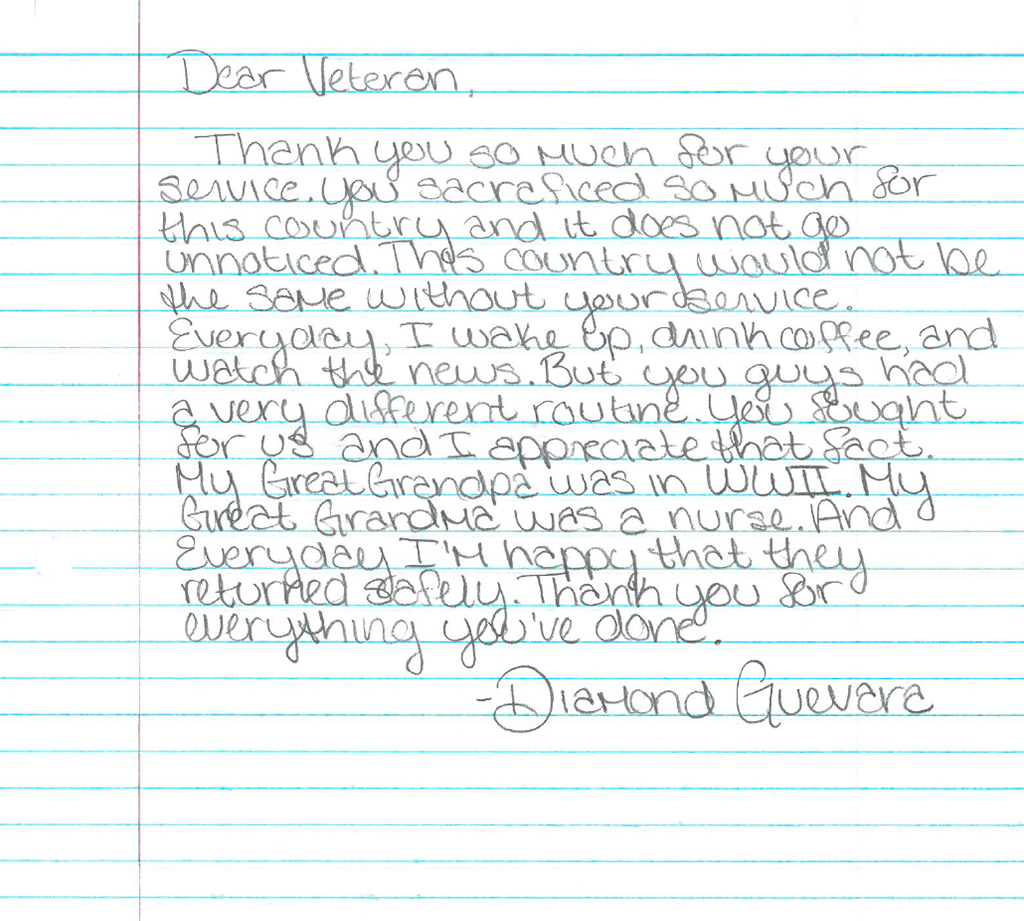 Dear Veteran,
Thank you so much for your
service. You sacraficed so much for
this country and it does not go
unnoticed. This country would not be
the same without your service.
Everyday, I wake up, drink coffee, and
watch the news. But you guys had
a very different routine. You fought
for us and I appreciate that fact.
My Great Grandpa was in WWII. My
Great Grandma was a nurse. And
Everyday I'm happy that they
returned safely. Thank you for
everything you've done.
-Diamond Guevara